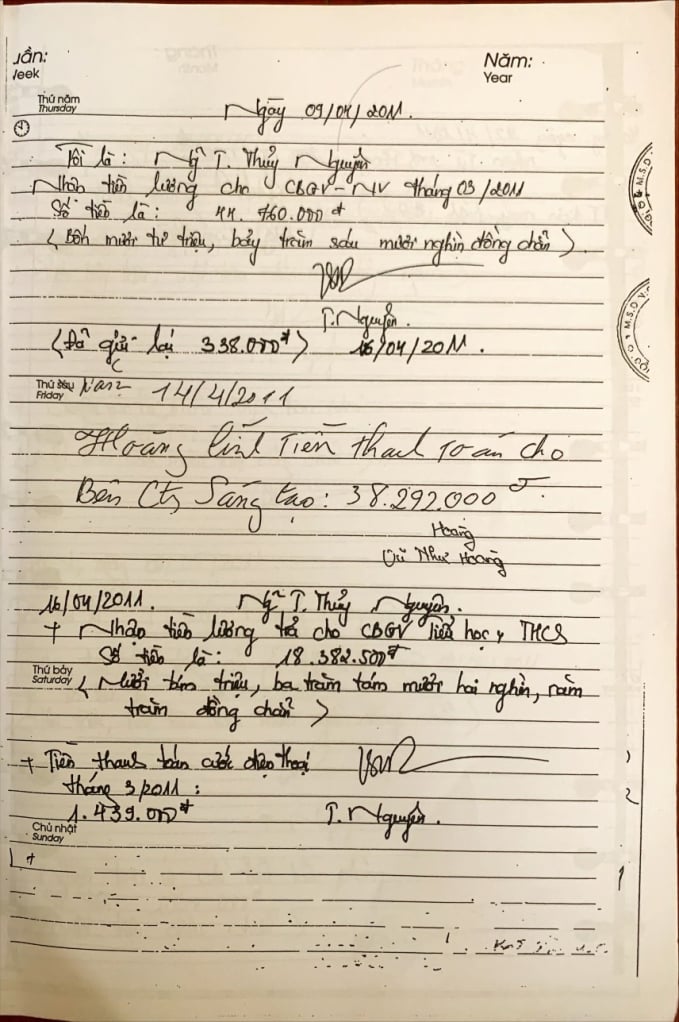 uần: Năm:
Week Year
Thứ năm
Thursday
Ngày 09/04/2011.
Tôi là: Ng~ T. Thủy Nguyên
Nhận tiền lương cho CBGV-NV tháng 03/2011
Số tiền là: 44.760.000đ
(Bốn mươi tư triệu, bảy trăm sáu mươi nghìn đồng chẵn).
T. Nguyên.
(Đã gửi lại 338.000đ) 16/04/2011.
Thứ sáu
Friday
14/4/2011
Hoàng lĩnh Tiền thanh toán cho
Bên Cty Sáng tạo: 38.292.000đ.
Hoàng
Vũ Như Hoàng
16/04/2011. Ng~ T. Thủy Nguyên.
+ Nhận tiền lương trả cho CBGV Tiểu học, THCS
Số tiền là: 18.382.500đ
Thứ bảy
Saturday
(Mười tám triệu, ba trăm tám mươi hai nghìn, năm
trăm đồng chẵn)
+ Tiền thanh toán cước điện thoại
tháng 3/2011:
1.439.000đ T. Nguyên.
Chủ nhật
Sunday
+